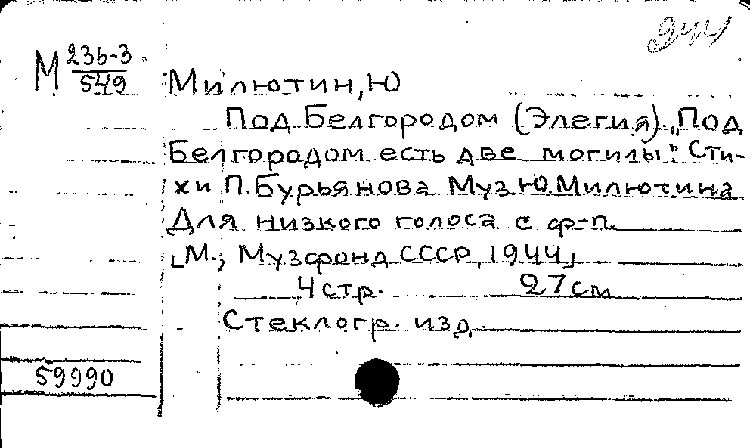 944
М 236-3
549
Милютин, Ю
Под Белгородом (Элегия) „Под
Белгородом есть две могилы". Сти-
хи П. Бурьянова Муз Ю. Милютина
Для низкого голоса с ф-п.
[М., Музфонд СССР, 1944]
4 стр. 27 см
Стеклогр. изд.
59990